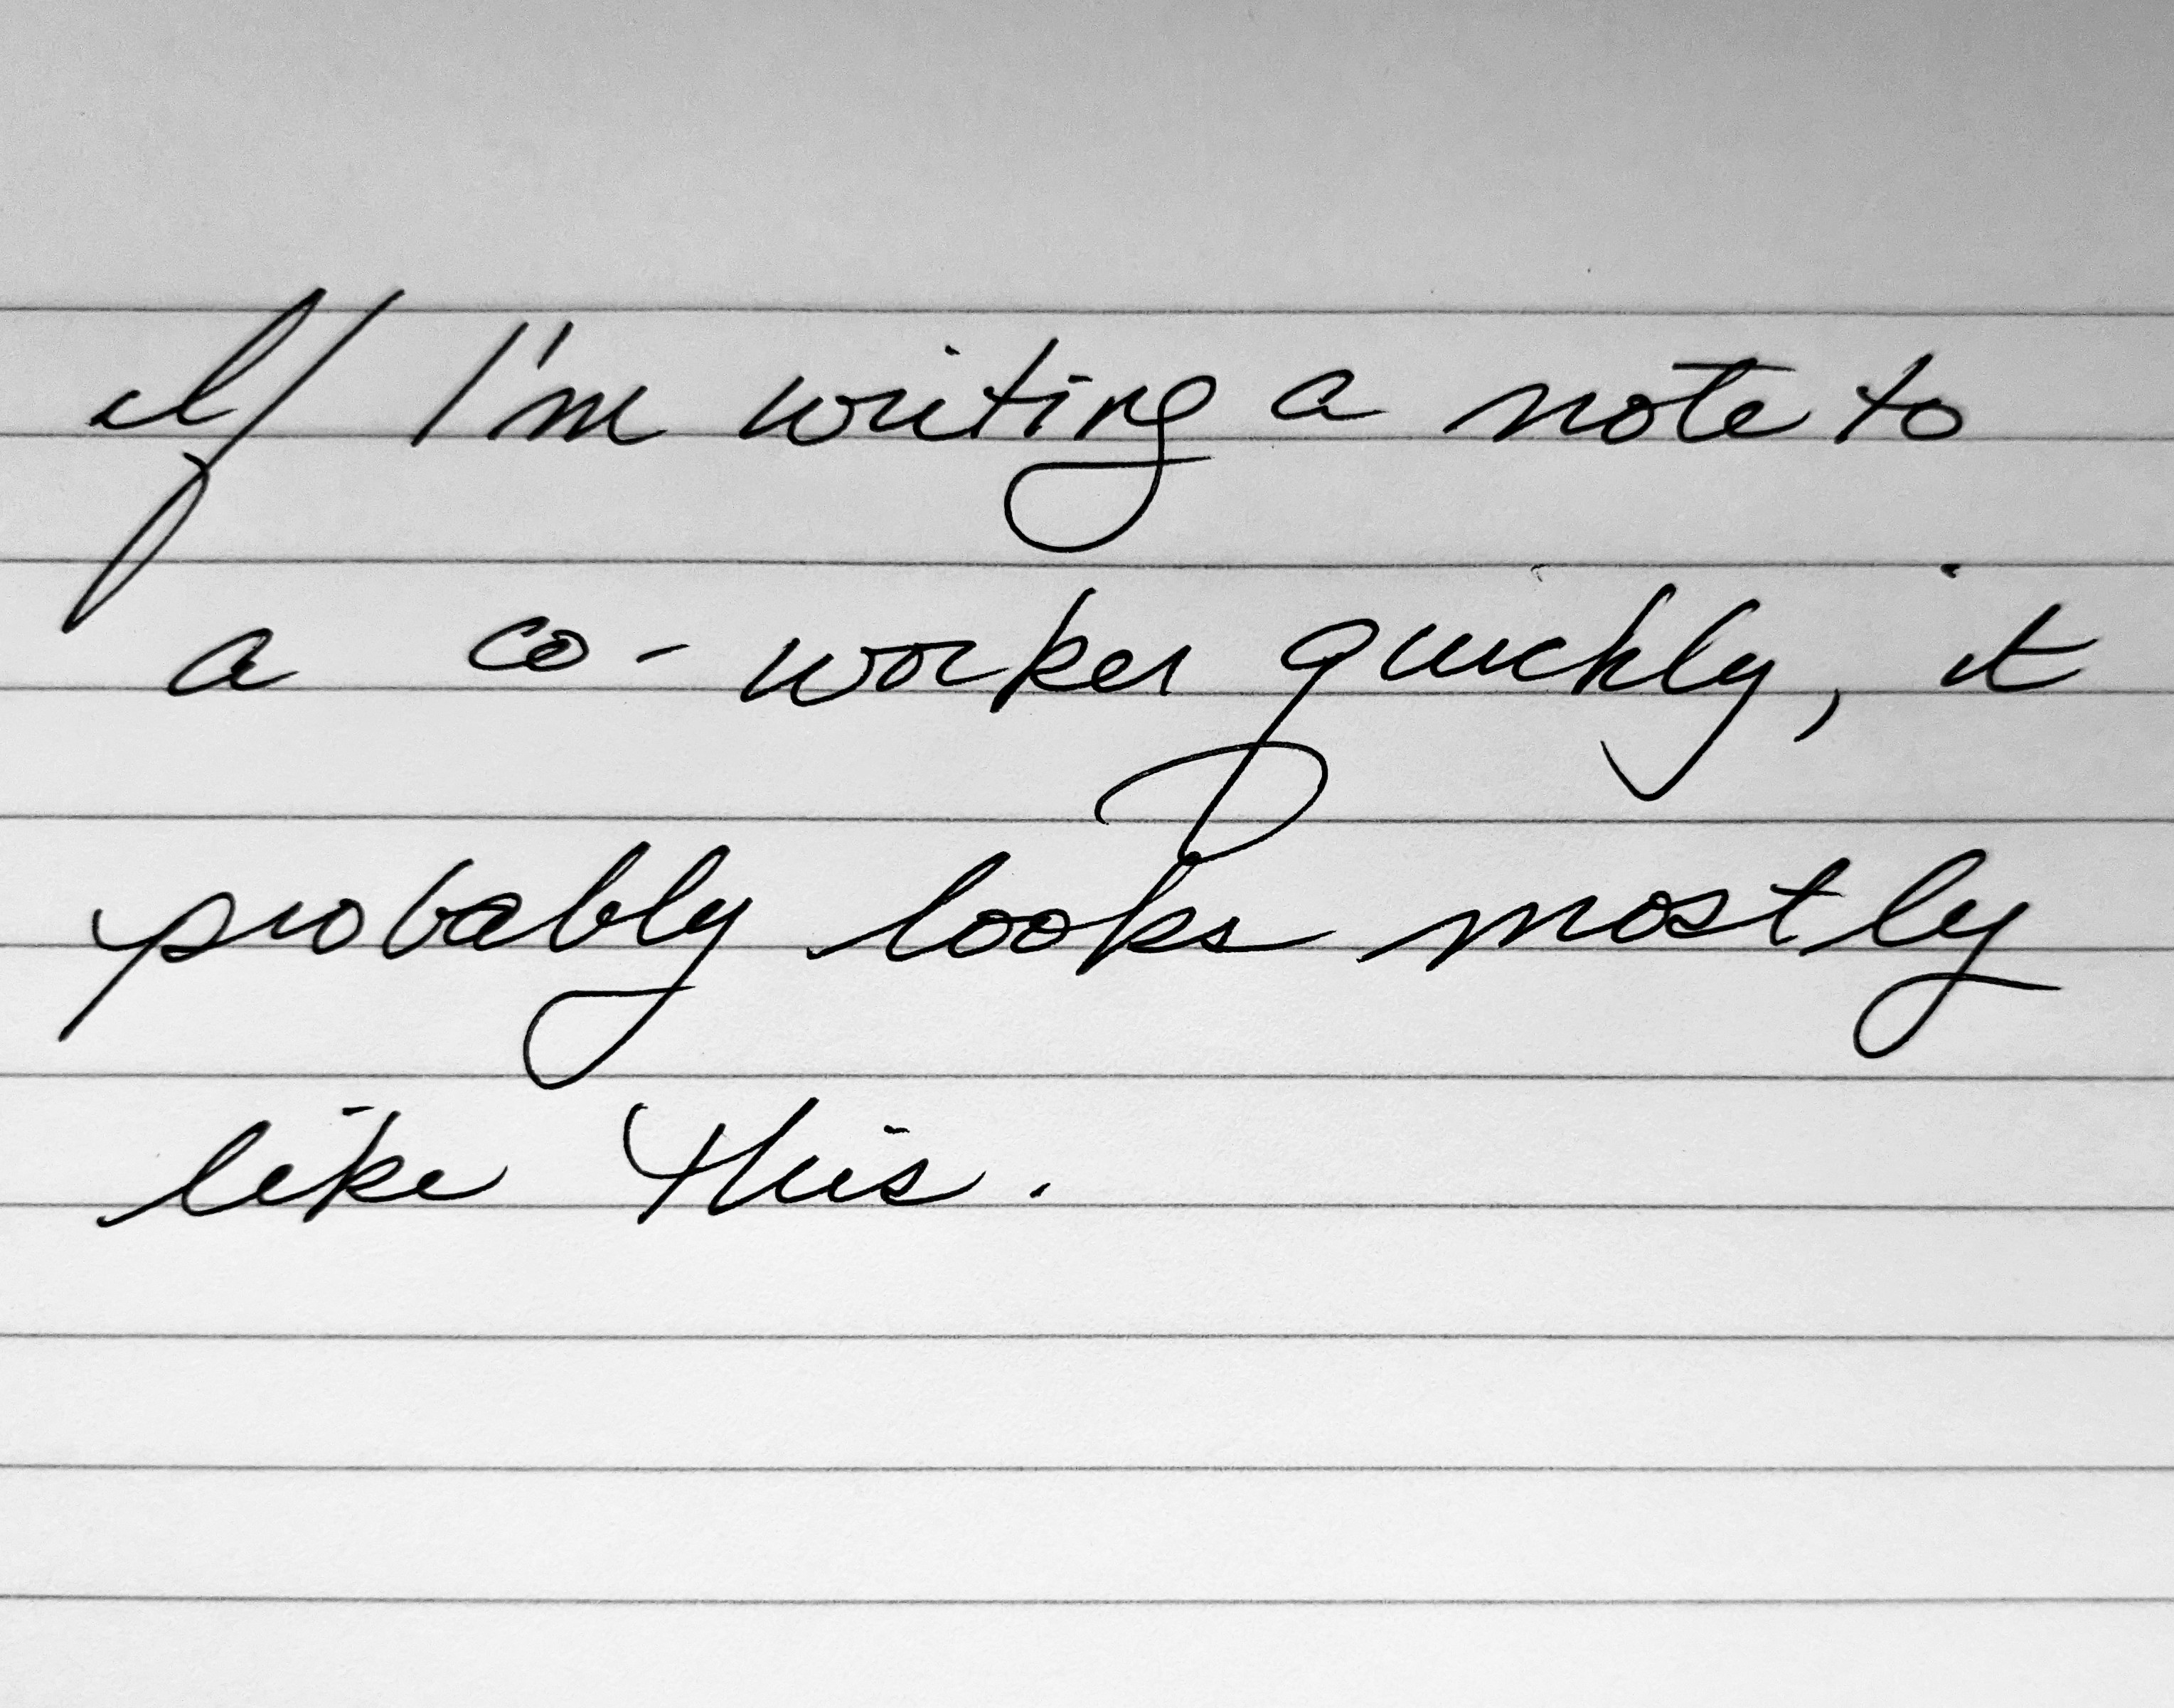 If I'm writing a note to
a co-worker quickly, it
probably looks mostly
like this.